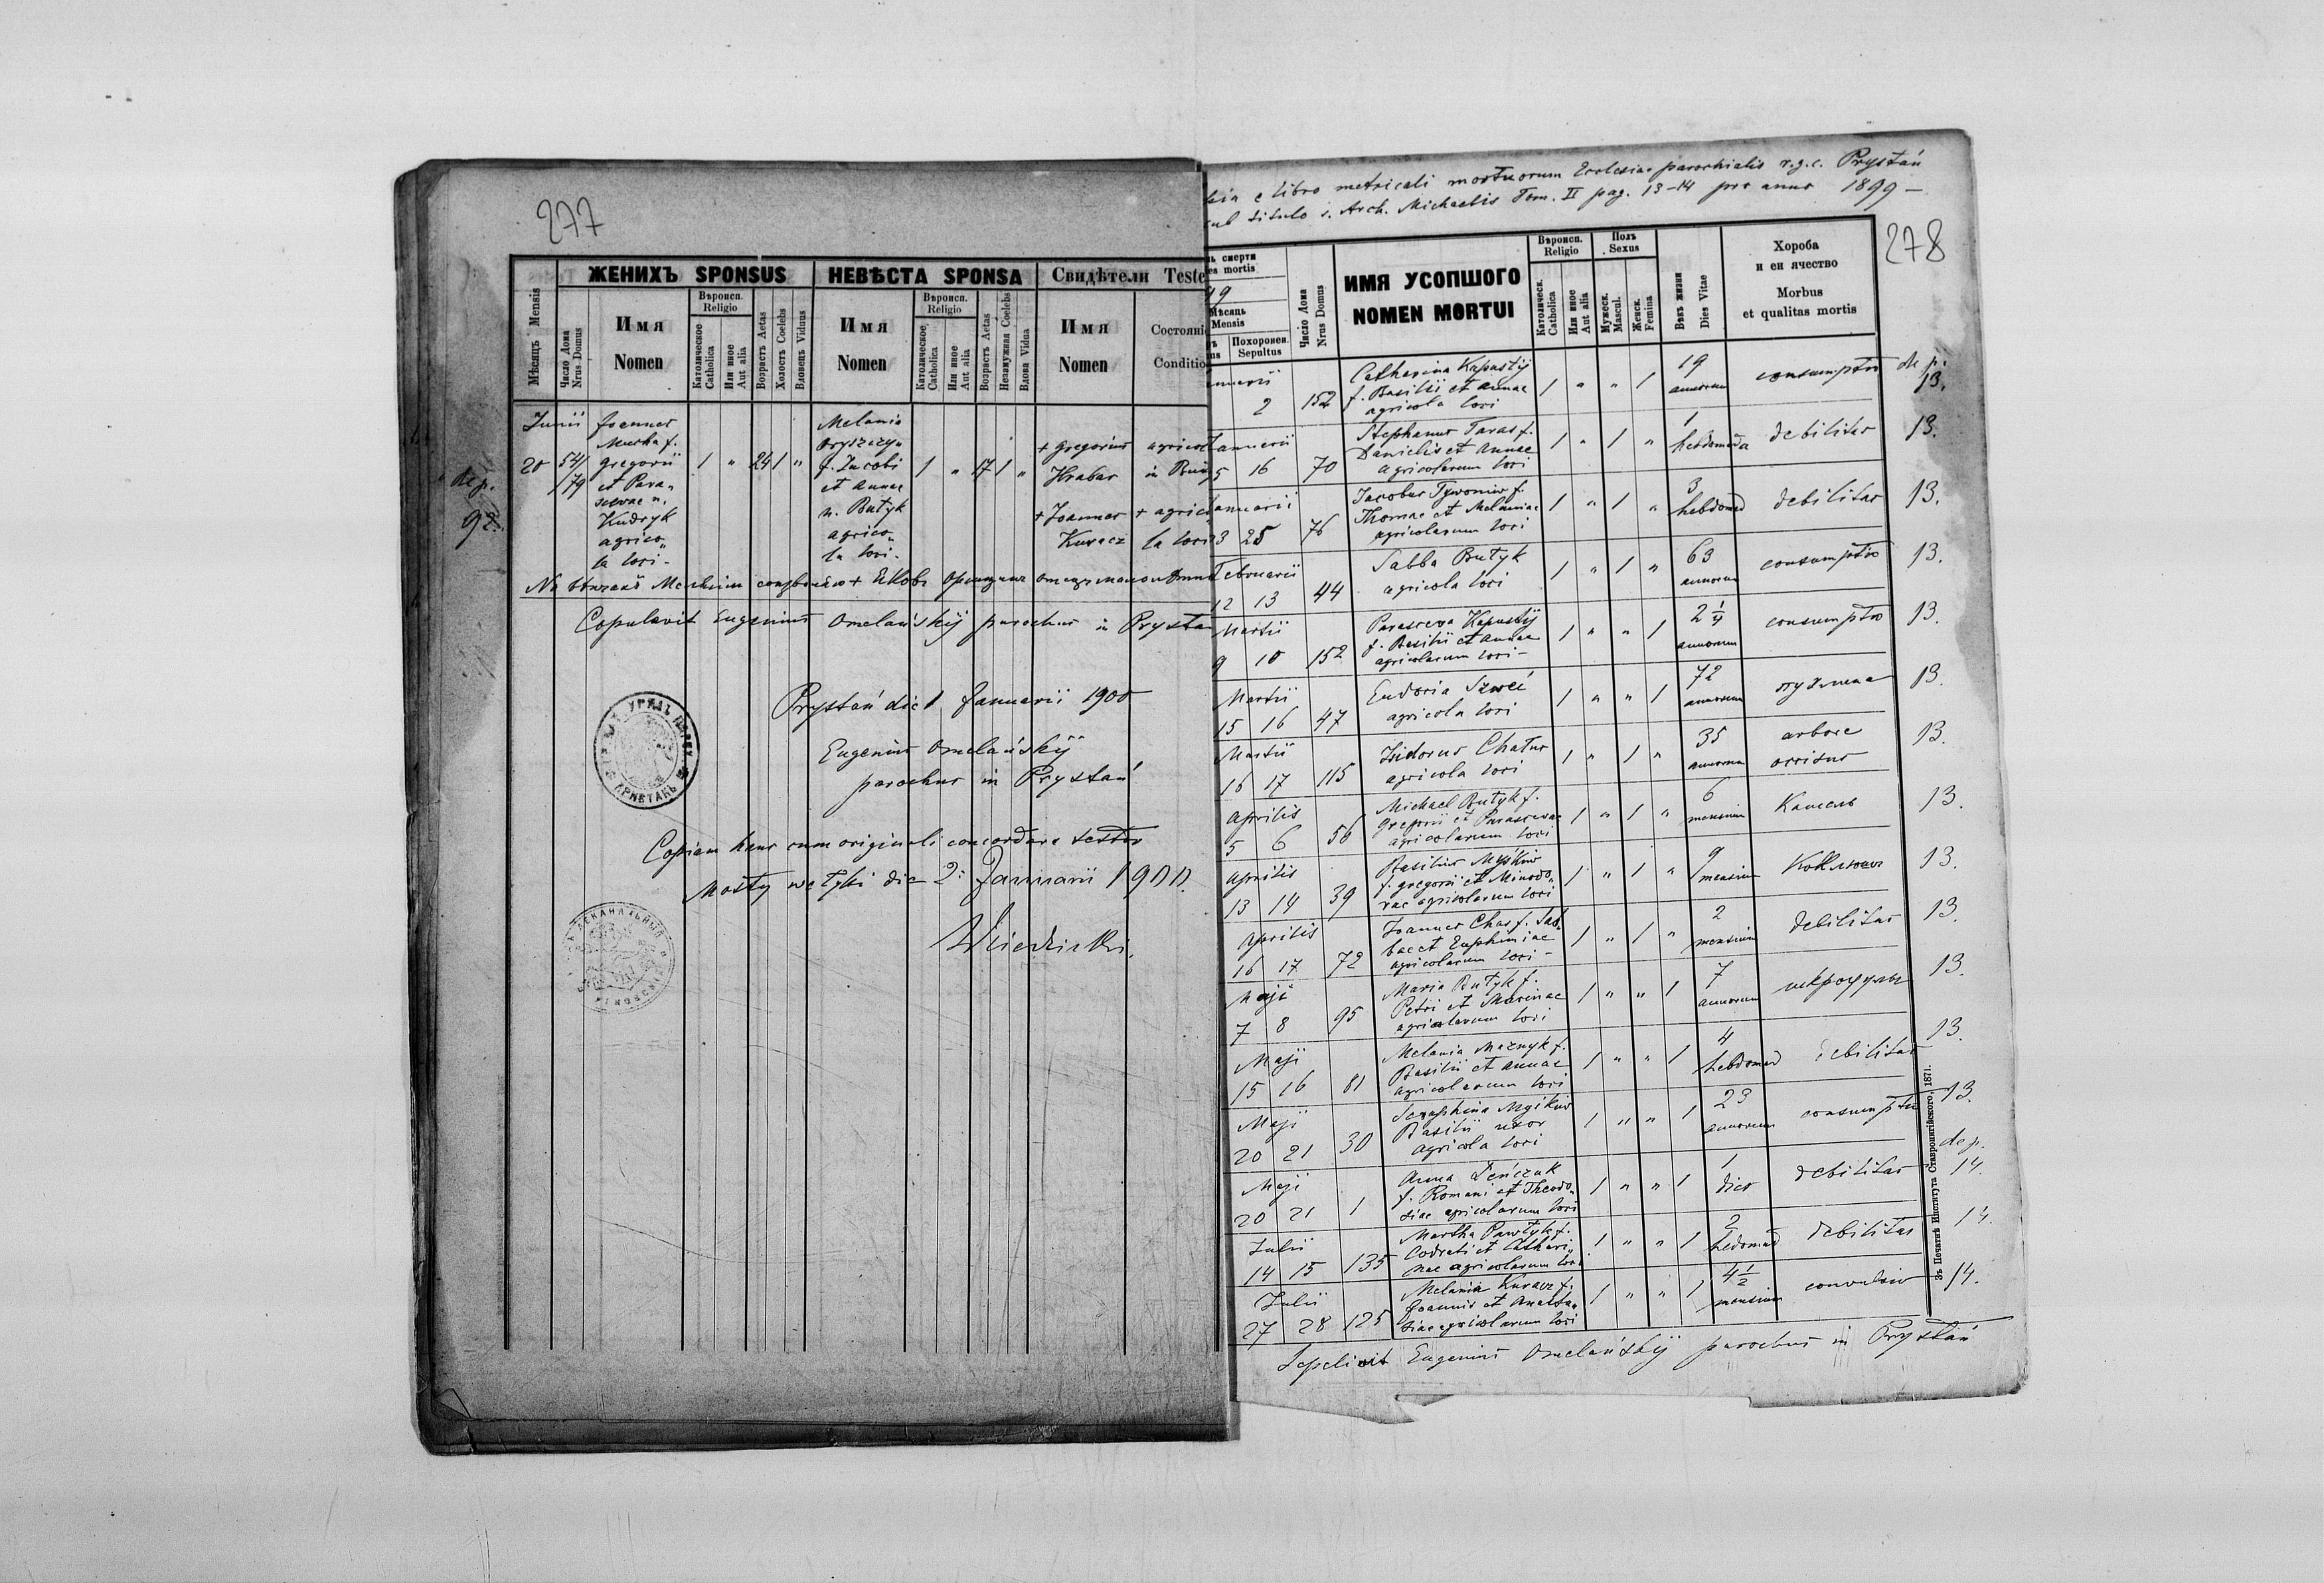 277
ЖЕНИХЪ SPONSUS
НЕВѢСТА SPONSA
Свидѣтели Teste
Мѣсяцъ Mensis
Число Дома Nrus Domus
Имя
Nomen
Вѣроисп.
Religio
Католическое Catholica
Или иное Aut alia
Возрастъ Aetas
Холостъ Coelebs
Вдовецъ Viduus
Имя
Nomen
Вѣроисп.
Religio
Католическое Catholica
Или иное Aut alia
Возрастъ Aetas
Незамужная Coelebs
Вдова Vidua
Имя
Nomen
Состояні
Conditio
dep.
92.
Junii
20
54/
/79
Joannes
Mucha f.
Gregorii
et Para„
scevae n.
Kudryk
agrico„
la loci -
1 „ 24 1 „
Melania
Oryszczy„
f. Jacobi
et Annae
n. Butyk
agrico„
la loci -
1 „ 17 1 „
+ Gregorius
Hrabar
agricol
in
+ Joannes
Kuracz
+ agrico
la loci
Copulavit Eugenius Omelańskÿ parochus in Prystań
Prystań die 1 Januarii 1900
Eugenius Omelańskÿ
parochus in Prystań
УРЯДЪ
ПРИСТАНЬ
Copiam hanc cum originali concordare testor
Mosty wełyki die 2: Januarii 1900.
e libro metricali mortuorum Ecclesiae parochialis r.g.c. Prystań
sub titulo s. Arch. Michaelis Tom. II pag. 13-14 pro anno 1899 -
278
ь смерти
es mortis
Мѣсяць
Mensis
Похоронен.
Sepultus
Число Дома
Nrus Domus
ИМЯ УСОПШОГО
NOMEN MORTUI
Вѣроисп.
Religio
Католическ. Catholica
Или иное Aut alia
Полъ
Sexus
Мужеск. Mascul.
Женск. Femina
Вѣкъ жизни
Dies Vitae
Хороба
и еи ячество
Morbus
et qualitas mortis
nuarii
2 152
Catharina Kapustÿ
f. Basilii et Annae
agricola loci
1 „ „ 1
19
annorum
consumptio
de p.
13.
Januarii
5 16 70
Stephanus Taras f.
Danielis et Annae
agricolarum loci
1 „ 1 „
1
hebdomada
debilitas
13.
Januarii
3 25 76
Jacobus Tywoniw f.
Thomae et Melaniae
agricolarum loci
1 „ 1 „
3
hebdomad
debilitas
13.
Februarii
12 13 44
Sabba Butyk
agricola loci
1 „ 1 „
63
annorum
consumptio
13.
Martii
9 10 152
Parasceva Kapustÿ
f. Basilii et Annae
agricolarum loci -
1 „ „ 1
2 1/4
annorum
consumptio
13.
Martii
15 16 47
Eudoxia
agricola loci
1 „ „ 1
72
annorum
пухлина
13.
Martii
16 17 115
Isidorus Chatur
agricola loci
1 „ 1 „
35
annorum
arbore
occisus
13.
Aprilis
5 6 56
Michael Butyk f.
Gregorii et Parascevae
agricolarum loci
1 „ 1 „
6
mensium
Кашель
13.
Aprilis
13 14 39
Basilius Myśkiw
f. Gregorii et Minodo„
rae agricolarum loci
1 „ 1 „
9
mensium
Коклюшъ
13.
Aprilis
16 17 72
Joannes Chas f. Sab„
bae et Euphimiae
agricolarum loci -
1 „ 1 „
2
mensium
debilitas
13.
Maji
7 8 95
Maria Butyk f.
Petri et Marinae
agricolarum loci
1 „ „ 1
7
annorum
шкрофулы
13.
Maji
15 16 81
Melania Maznyk f.
Basilii et Annae
agricolarum loci
1 „ „ 1
4
hebdomad
debilitas
13.
Maji
20 21 30
Seraphina Myśkiw
Basilii uxor
agricola loci
1 „ „ 1
23
annorum
consumptio
13.
Maji
20 21 1
Anna Deńczuk
f. Romani et Theodo„
siae agricolarum loci
1 „ „ 1
1
dies
debilitas
dep.
14.
Julii
14 15 135
Martha Pawłyk f.
Codrati et Cathari„
nae agricolarum loci
1 „ „ 1
2
hedomad
debilitas
14.
Julii
27 28 125
Melania Kuracz f.
Joannis et Anasta„
siae agricolarum loci
1 „ „ 1
4 1/2
mensium
convulsio
14.
Sepelivit Eugenius Omelańskÿ parochus in Prystań
Зъ Печатнѣ Института Ставропигійского, 1871.